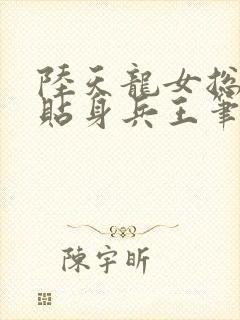 陸天龍女總
貼身兵王筆
陳宇昕